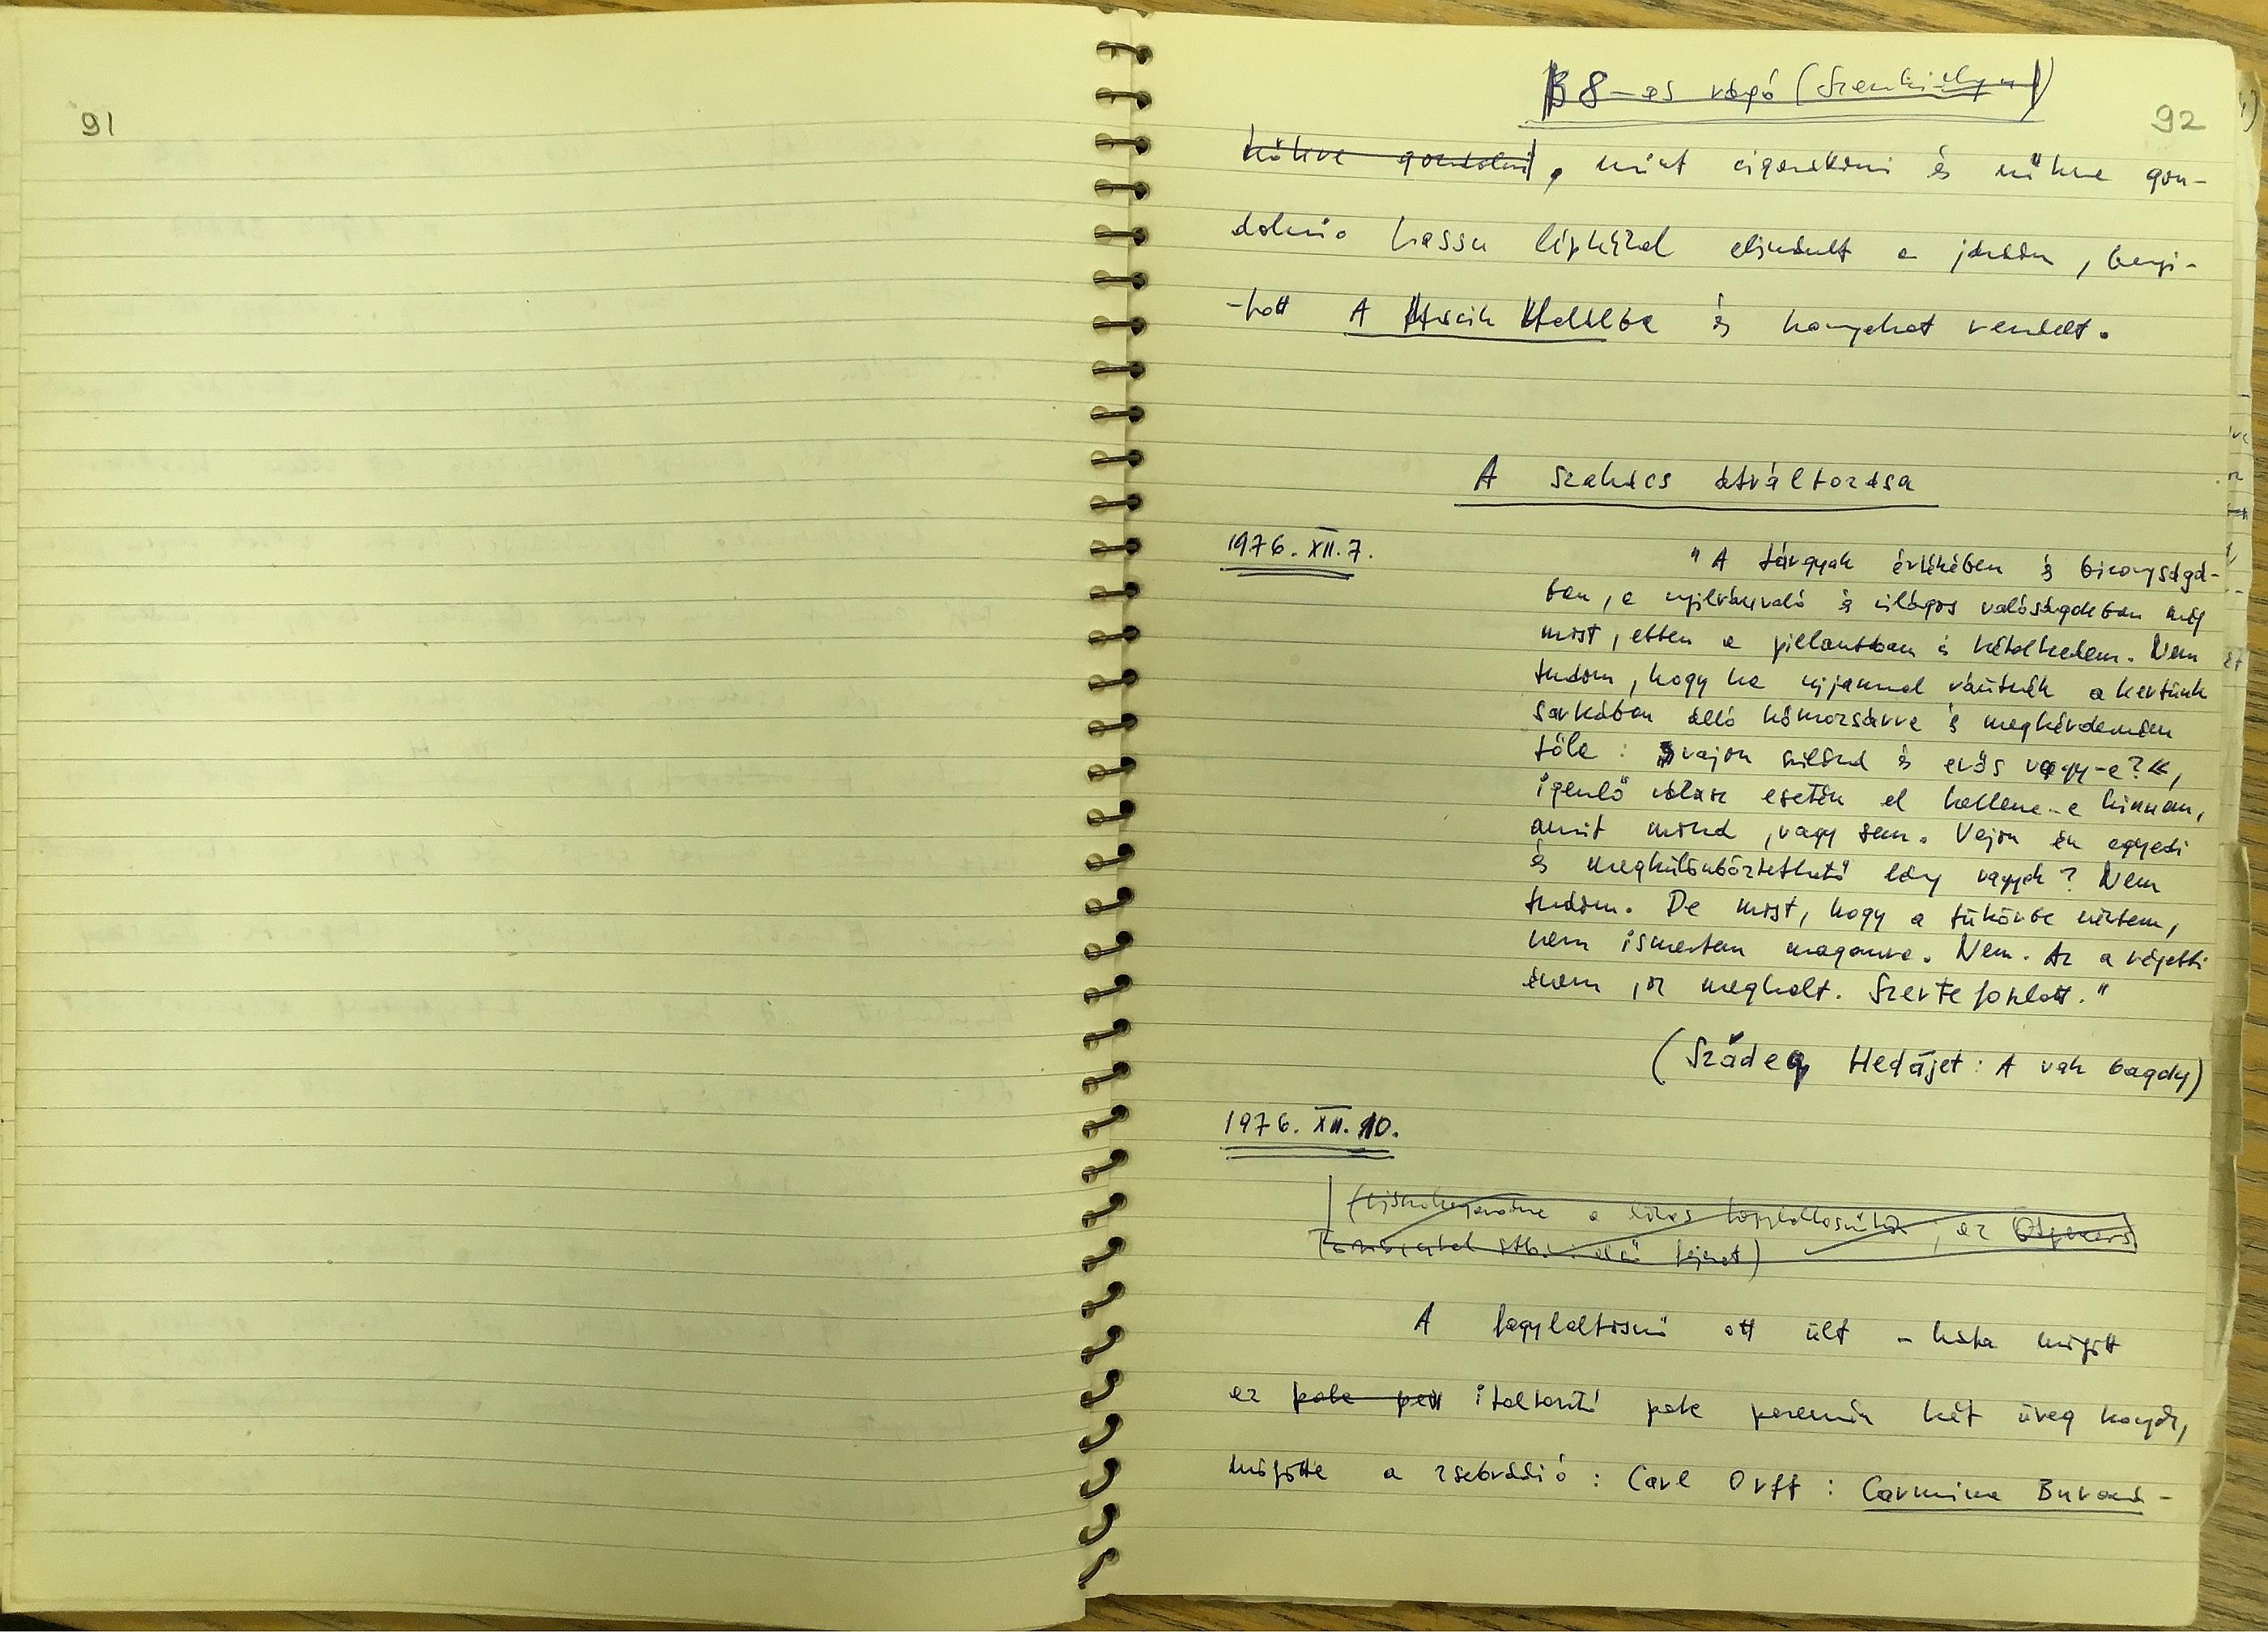 91
92
B 8-as vágó
nőkre gondolni, mint cigarettázni és nőkre gon-
dolni. Lassu léptekkel elindult a járdán, benyi-
-tott A és konyakot rendelt.
A szakács átváltozása
1976. XII. 7.
"A tárgyak értékében és bizonyságá-
ban, a nyilvánvaló és világos valóságokban még
most, ebben a pillanatban is kételkedem. Nem
tudom, hogy ha ujjammal ráütnék a kertünk
sarkában álló kőmozsárra és megkérdezném
tőle: »vajon szilárd és erős vagy-e?«,
igenlő válasz esetén el kellene-e hinnem,
amit mond, vagy sem. Vajon én egyedi
és megkülönböztethető lény vagyok? Nem
tudom. De most, hogy a tükörbe néztem,
nem ismertem magamra. Nem. Az a régebbi
énem, az meghalt. Szertefoszlott."
(Szádeq Hedájet: A vak bagoly)
1976. XII. 10.
a ; az
stb. első fejezet)
A fagylaltosnő ott ült – háta mögött
az italtartó polc peremén két üveg konyak,
mögötte a zsebrádió: Carl Orff: Carmina Buraná-